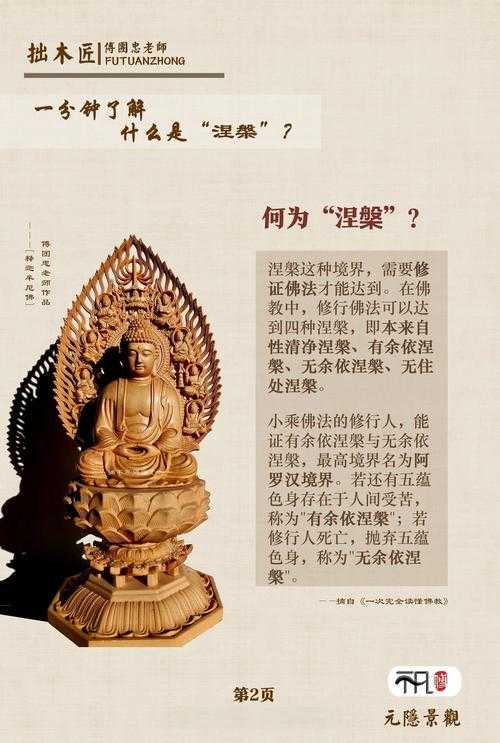 拙木匠
傅圑忠老師
FUTUANZHONG
一分钟了解
什么是“涅槃”?
何为“涅槃”?
傅圑忠老师作品
----[释迦牟尼佛]
涅槃这种境界，需要修
证佛法才能达到。在佛
教中，修行佛法可以达
到四种涅槃，即本来自
性清净涅槃、有余依涅
槃、无余依涅槃、无住
处涅槃。
小乘佛法的修行人，能
证有余依涅槃与无余依
涅槃，最高境界名为阿
罗汉境界。若还有五蕴
色身存在于人间受苦，
称为"有余依涅槃"；若
修行人死亡，抛弃五蕴
色身，称为"无余依涅
槃"。
---摘自《一次完全读懂佛教》
第2页
元隱景觀